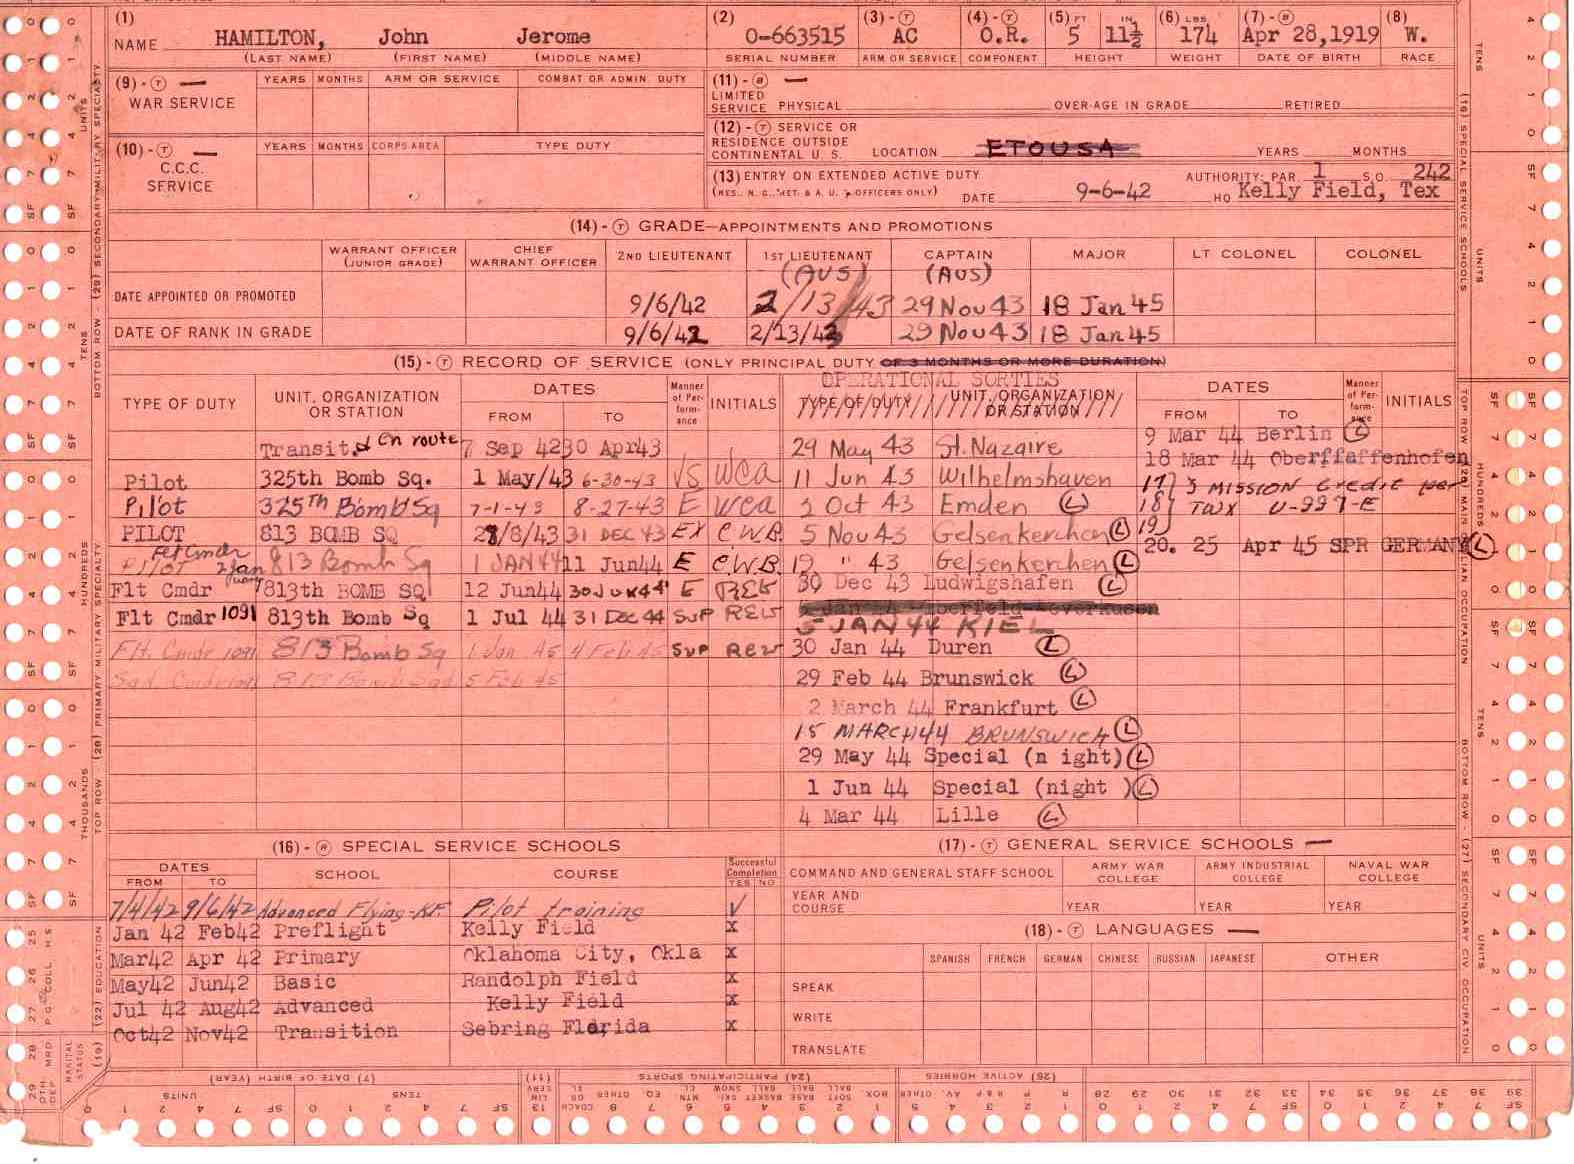 (1) NAME HAMILTON, John Jerome
(LAST NAME) (FIRST NAME) (MIDDLE NAME)
(2) O-663515 SERIAL NUMBER
(3)-T AC ARM OR SERVICE
(4)-T O.R. COMPONENT
(5) FT 5 IN 11½ HEIGHT
(6) LBS 174 WEIGHT
(7)-R Apr 28,1919 DATE OF BIRTH
(8) W. RACE
(9)-T — WAR SERVICE
YEARS MONTHS ARM OR SERVICE COMBAT OR ADMIN. DUTY
(10)-T — C.C.C. SERVICE
YEARS MONTHS CORPS AREA TYPE DUTY
(11)-R — LIMITED SERVICE PHYSICAL OVER-AGE IN GRADE RETIRED
(12)-T SERVICE OR RESIDENCE OUTSIDE CONTINENTAL U. S. LOCATION ETOUSA YEARS MONTHS
(13) ENTRY ON EXTENDED ACTIVE DUTY AUTHORITY: PAR. 1 S.O. 242
DATE 9-6-42 HQ Kelly Field, Tex
(14)-T GRADE—APPOINTMENTS AND PROMOTIONS
WARRANT OFFICER (JUNIOR GRADE) CHIEF WARRANT OFFICER 2ND LIEUTENANT 1ST LIEUTENANT (AUS) CAPTAIN (AUS) MAJOR LT COLONEL COLONEL
DATE APPOINTED OR PROMOTED 9/6/42 2/13/43 29 Nov 43 18 Jan 45
DATE OF RANK IN GRADE 9/6/42 2/13/43 29 Nov 43 18 Jan 45
(15)-T RECORD OF SERVICE (ONLY PRINCIPAL DUTY OF 3 MONTHS OR MORE DURATION)
TYPE OF DUTY UNIT, ORGANIZATION OR STATION DATES FROM TO Manner of Performance INITIALS
Transit. & En route 7 Sep 42 30 Apr43
Pilot 325th Bomb Sq. 1 May/43 6-30-43 VS WCA
Pilot 325th Bomb Sq 7-1-43 8-27-43 E WCA
PILOT 813 BOMB SQ 28/8/43 31 DEC 43 EX C.W.B.
PILOT Flt Cmdr 2 January 813 Bomb Sq 1 JAN 44 11 Jun44 E C.W.B.
Flt Cmdr 813th BOMB SQ 12 Jun44 30 JUN 44 E REW
Flt Cmdr 1091 813th Bomb Sq 1 Jul 44 31 Dec 44 SUP REW
Flt. Cmdr 1091 813 Bomb Sq 1 Jan 45 4 Feb 45 SUP REW
813 Bomb Sqd 5 Feb 45
OPERATIONAL SORTIES
TYPE OF DUTY UNIT, ORGANIZATION OR STATION DATES FROM TO Manner of Performance INITIALS
29 May 43 St. Nazaire
11 Jun 43 Wilhelmshaven
2 Oct 43 Emden L
5 Nov 43 Gelsenkerchen L
19 " 43 Gelsenkerchen L
30 Dec 43 Ludwigshafen L
5 JAN 44 KIEL
30 Jan 44 Duren L
29 Feb 44 Brunswick L
2 March 44 Frankfurt L
15 MARCH 44 BRUNSWICK L
29 May 44 Special (n ight) L
1 Jun 44 Special (night ) L
4 Mar 44 Lille L
9 Mar 44 Berlin L
18 Mar 44 Oberffaffenhofen
17 } 3 MISSION Credit per
18 } TWX U-997-E
19 }
20. 25 Apr 45 SPR GERMANY L
(16)-R SPECIAL SERVICE SCHOOLS
DATES FROM TO SCHOOL COURSE Successful Completion YES NO
7/4/42 9/6/42 Advanced Flying-K.F. Pilot training √
Jan 42 Feb42 Preflight Kelly Field x
Mar42 Apr 42 Primary Oklahoma City, Okla x
May42 Jun42 Basic Randolph Field x
Jul 42 Aug42 Advanced Kelly Field x
Oct42 Nov42 Transition Sebring Florida x
(17)-T GENERAL SERVICE SCHOOLS —
COMMAND AND GENERAL STAFF SCHOOL ARMY WAR COLLEGE ARMY INDUSTRIAL COLLEGE NAVAL WAR COLLEGE
YEAR AND COURSE YEAR YEAR YEAR
(18)-T LANGUAGES —
SPANISH FRENCH GERMAN CHINESE RUSSIAN JAPANESE OTHER
SPEAK
WRITE
TRANSLATE